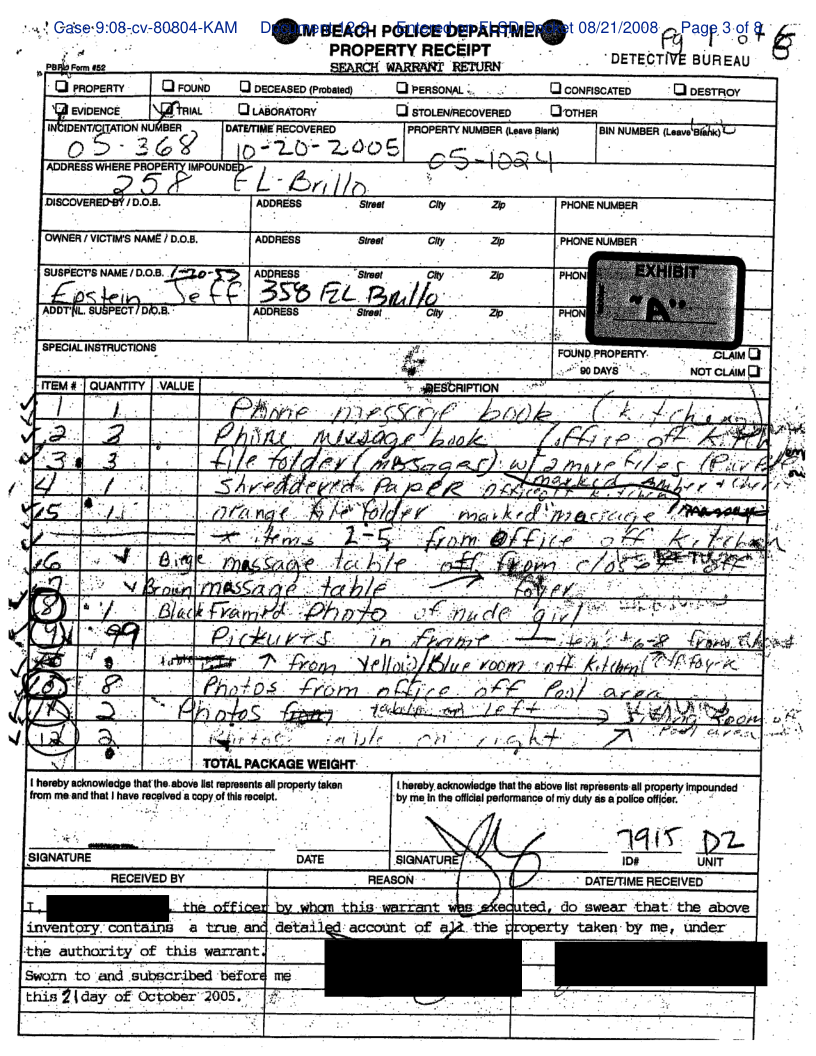 Case 9:08-cv-80804-KAM Document 12-2 Entered on FLSD Docket 08/21/2008 Page 3 of 8
M BEACH POLICE DEPARTME
Pg 1 of 6
PROPERTY RECEIPT
SEARCH WARRANT RETURN
DETECTIVE BUREAU
Form #52
PROPERTY FOUND DECEASED (Probated) PERSONAL CONFISCATED DESTROY
EVIDENCE TRIAL LABORATORY STOLEN/RECOVERED OTHER
INCIDENT/CITATION NUMBER DATE/TIME RECOVERED PROPERTY NUMBER (Leave Blank) BIN NUMBER (Leave Blank)
05-368 10-20-2005 05-1024
ADDRESS WHERE PROPERTY IMPOUNDED
258 EL-Brillo
DISCOVERED BY / D.O.B. ADDRESS Street City Zip PHONE NUMBER
OWNER / VICTIM'S NAME / D.O.B. ADDRESS Street City Zip PHONE NUMBER
SUSPECT'S NAME / D.O.B. 1-20-53 ADDRESS Street City Zip PHON
Epstein Jeff 358 EL Brillo
EXHIBIT
"A"
ADDT'NL. SUSPECT / D.O.B. ADDRESS Street City Zip PHON
SPECIAL INSTRUCTIONS
FOUND PROPERTY CLAIM
90 DAYS NOT CLAIM
ITEM # QUANTITY VALUE DESCRIPTION
1 1 Phone message book (kitchen
2 Phone message book (office off Kitch
3 3 file folder (messages) w/ 2 more files
marked Amber +
4 1 Shreddered Paper office off kitchen
5 1 orange file folder marked "massage"
* items 2-5 from office off Kitchen
6 Biege message table off from closet off
7 Brown message table foyer
8 1 Black Framed Photo of nude girl
9 Pickures in frame items 6-8 from
↑ from Yellow/Blue room off Kitchen
10 8 Photos from office off Pool area
11 2 Photos table on left
Room off
Pool area
12 2 Photos table on right
TOTAL PACKAGE WEIGHT
I hereby acknowledge that the above list represents all property taken
from me and that I have received a copy of this receipt.
I hereby acknowledge that the above list represents all property impounded
by me in the official performance of my duty as a police officer.
7915 D2
SIGNATURE DATE SIGNATURE ID# UNIT
RECEIVED BY REASON DATE/TIME RECEIVED
I, , the officer by whom this warrant was executed, do swear that the above
inventory contains a true and detailed account of all the property taken by me, under
the authority of this warrant.
Sworn to and subscribed before me
this 21 day of October 2005.